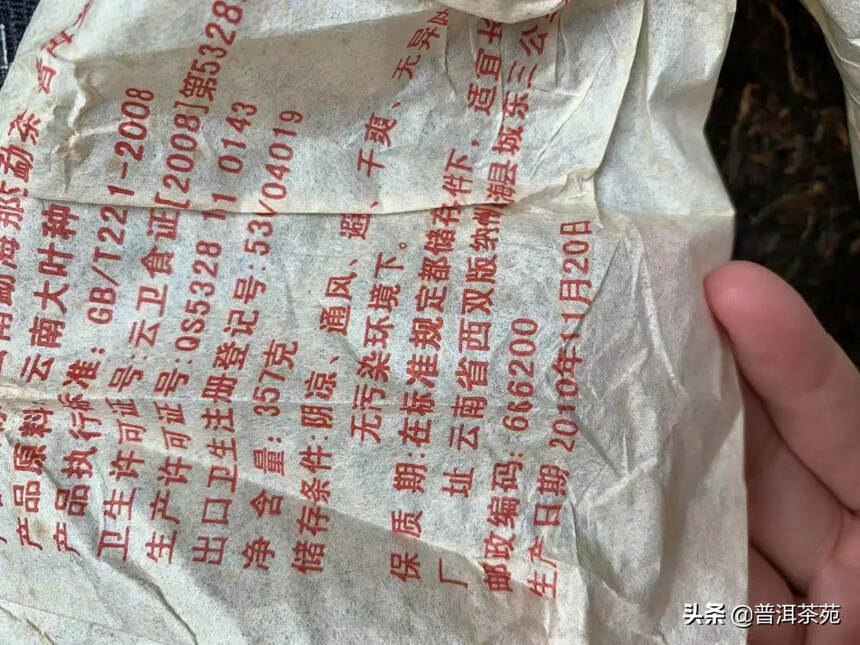 产品原料 云南大叶种
产品执行标准: GB/T221-2008
卫生许可证号:云卫食证[2008]第5328
生产许可证号:QS5328 11 0143
出口卫生注册登记号:53 /04019
净含量: 357克
储存条件:阴凉、通风、避 、干爽、无异
无污染环境下。
保质期:在标准规定都储存件下,适宜长
厂 址 云南省西双版纳 海县城东三公
邮政编码: 666200
生产日期 2010年11月20日
头条 @普洱茶苑